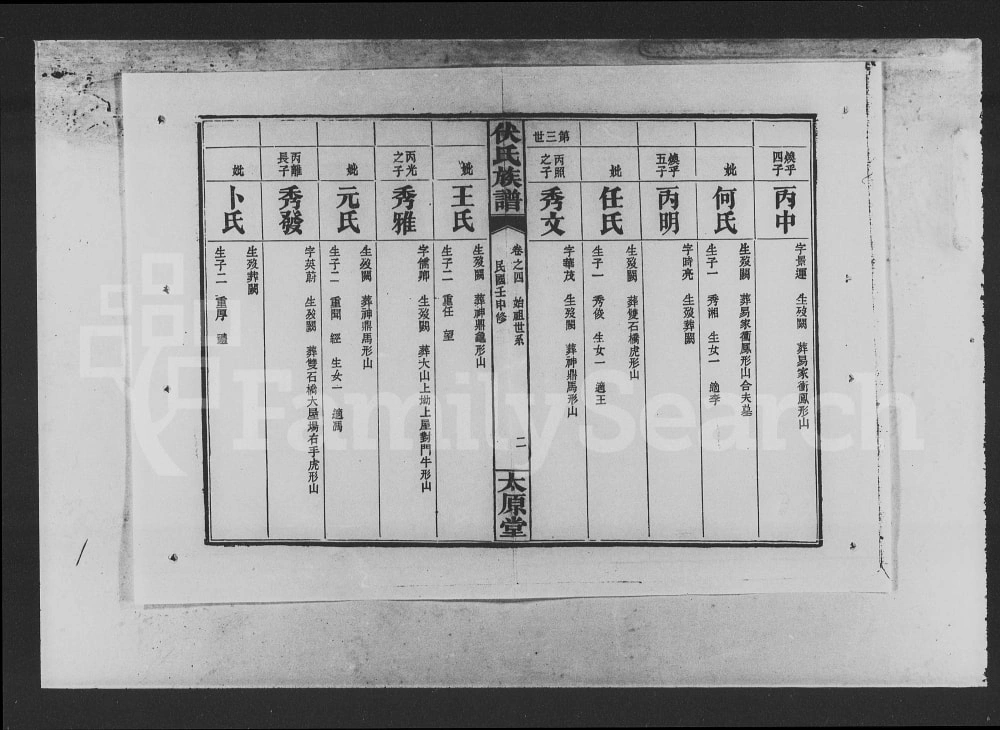 燒乎四子
丙中
字景運 生歿闕 葬易家衝鳳形山
妣
何氏
生歿闕 葬易家衝鳳形山合夫墓
生子一 秀湘 生女一 適李
燒乎五子
丙明
字時亮 生歿葬闕
妣
任氏
生歿闕 葬雙石橋虎形山
生子一 秀俊 生女一 適王
第三世
丙照之子
秀文
字華茂 生歿闕 葬神鼎馬形山
伏氏族譜
卷之四 始祖世系
民國壬申修
二
太原堂
妣
王氏
生歿闕 葬神鼎龜形山
生子二 重任 望
丙光之子
秀雅
字儒卿 生歿闕 葬大山上坳上屋對門牛形山
妣
元氏
生歿闕 葬神鼎馬形山
生子二 重聞 經 生女一 適馮
丙離長子
秀發
字英蔚 生歿闕 葬雙石橋大屋場右手虎形山
妣
卜氏
生歿葬闕
生子二 重厚 禮
FamilySearch